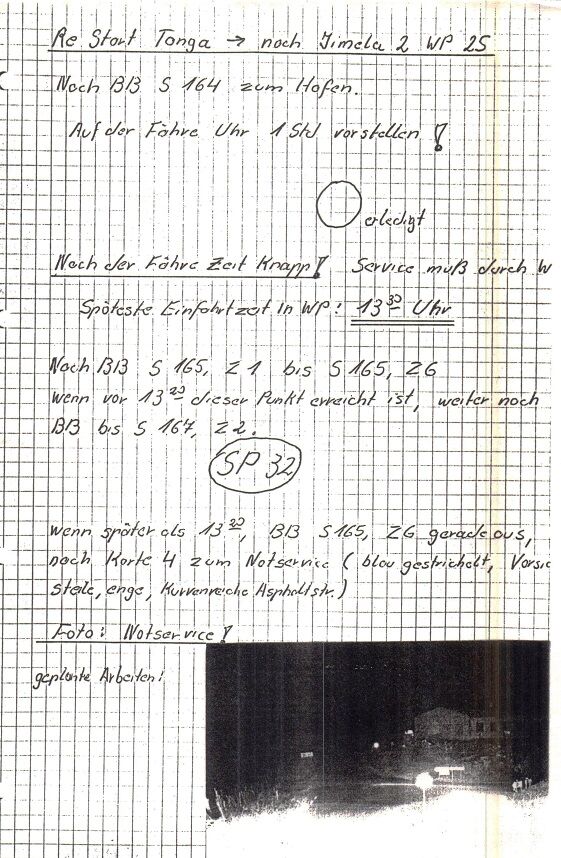 Re Start Tonga → nach Jimela 2 WP 25
Nach BB S 164 zum Hafen.
Auf der Fähre Uhr 1 Std vorstellen!
erledigt
Nach der Fähre Zeit Knapp! Service muß durch W
Späteste Einfahrtzeit in WP: 13 30 Uhr
Nach BB S 165, Z 1 bis S 165, Z 6
wenn vor 13 20 dieser Punkt erreicht ist, weiter nach
BB bis S 167, Z 2.
SP 32
wenn später als 13 20, BB S 165, Z 6 gerade aus,
nach Karte 4 zum Notservice (blau gestrichelt, Vorsic
steile, enge, Kurvenreiche Asphaltstr.)
Foto: Notservice!
geplante Arbeiten: